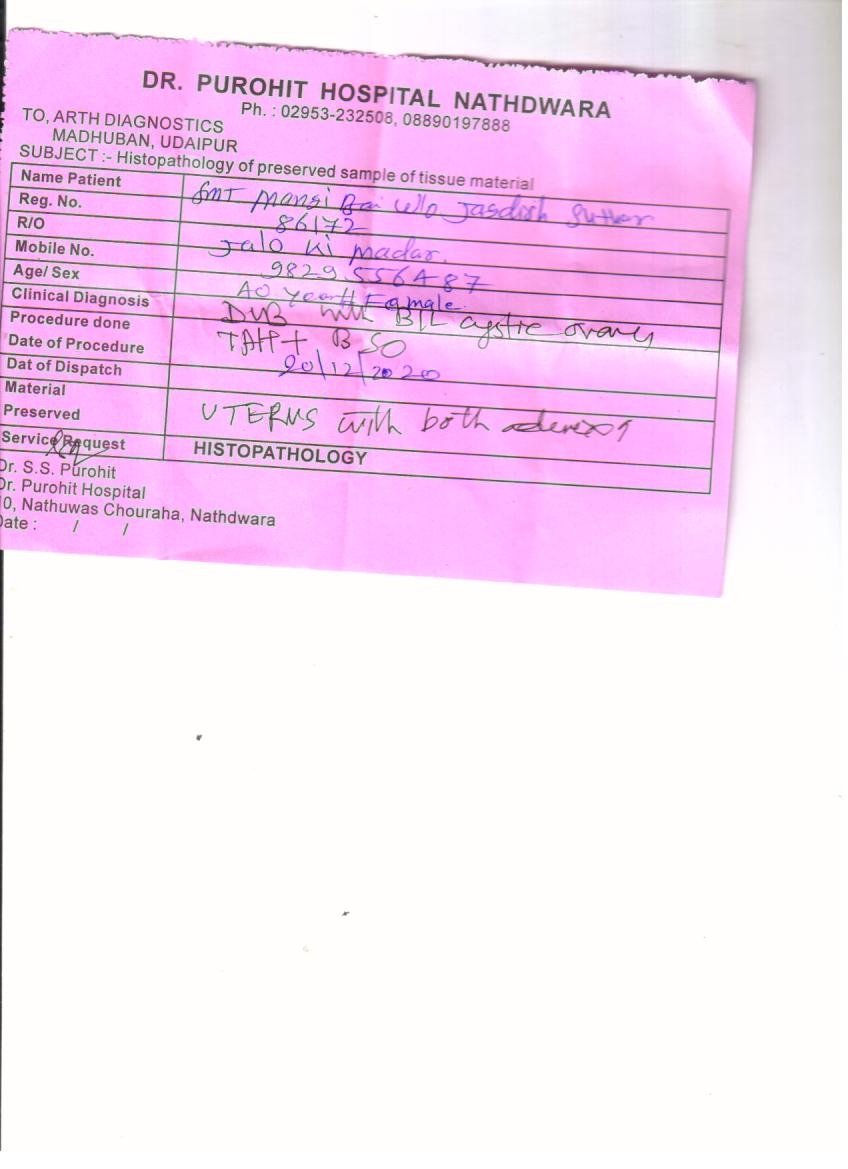 DR. PUROHIT HOSPITAL NATHDWARA
Ph. : 02953-232508, 08890197888
TO, ARTH DIAGNOSTICS
MADHUBAN, UDAIPUR
SUBJECT :- Histopathology of preserved sample of tissue material
Name Patient SMT Mangi Bai W/o Jagdish Suthar
Reg. No. 86172
R/O Jalo Ki Madar.
Mobile No. 9829556487
Age/ Sex 40 Year Female
Clinical Diagnosis DUB with B/L cystic ovary
Procedure done TAH + BSO
Date of Procedure 20/12/2020
Dat of Dispatch
Material
Preserved UTERUS with both
Service Request HISTOPATHOLOGY
Dr. S.S. Purohit
Dr. Purohit Hospital
0, Nathuwas Chouraha, Nathdwara
Date : / /